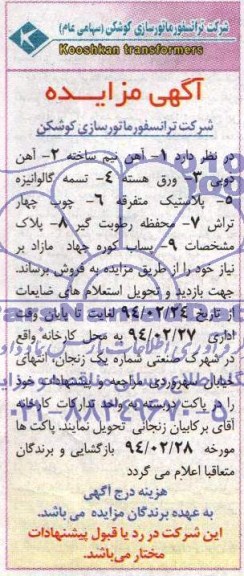 شرکت ترانسفورماتورسازی کوشکن (سهامی عام)
Kooshkan transformers
آگهی مزایده
شرکت ترانسفورماتورسازی کوشکن
در نظر دارد ۱- آهن نیم ساخته ۲- آهن
ذوبی ۳- ورق هسته ۴- تسمه گالوانیزه
۵- پلاستیک متفرقه ۶- چوب چهار
تراش ۷- محفظه رطوبت گیر ۸- پلاک
مشخصات ۹- پساب کوره چهاد مازاد بر
نیاز خود را از طریق مزایده به فروش برساند.
جهت بازدید و تحویل استعلام های ضایعات
از تاریخ ۹۴/۰۲/۲۴ لغایت تا پایان وقت
اداری ۹۴/۰۲/۲۷ به محل کارخانه واقع
در شهرک صنعتی شماره یک زنجان، انتهای
خیابان سهروردی مراجعه و پیشنهادات خود
را در پاکت دربسته به واحد تدارکات کارخانه
آقای برکاییان زنجانی تحویل نمایند. پاکت ها
مورخه ۹۴/۰۲/۲۸ بازگشایی و برندگان
متعاقبا اعلام می گردد
هزینه درج آگهی
به عهده برندگان مزایده می باشد.
این شرکت در رد یا قبول پیشنهادات
مختار می‌باشد.
۰۲۱-۸۸۳۴۹۶۷۰-۵